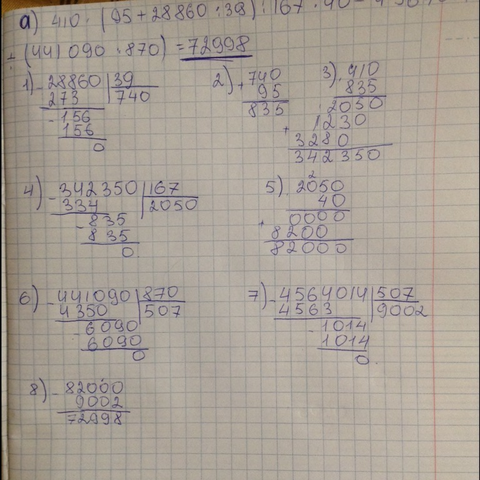 а) 410 · (95 + 28860 : 39) : 167 · 40 -
: (441 090 : 870) = 72998
1) - 28860 | 39
273 | 740
- 156
156
0
2) + 740
95
835
3) · 410
835
2050
+ 1230
3280
342350
4) - 342350 | 167
334 | 2050
- 835
835
0
5) · 2050
40
+ 0000
8200
82000
6) - 441090 | 870
4350 | 507
- 6090
6090
0
7) - 4564014 | 507
4563 | 9002
- 1014
1014
0
8) - 82000
9002
72998